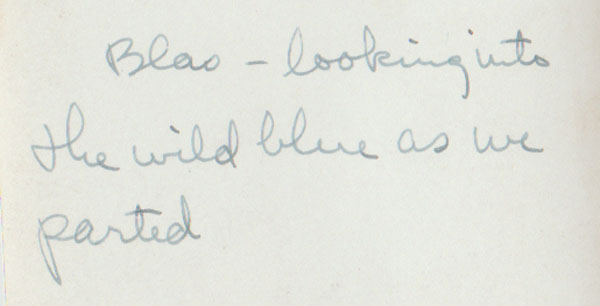 Blas – looking into
the wild blue as we
parted